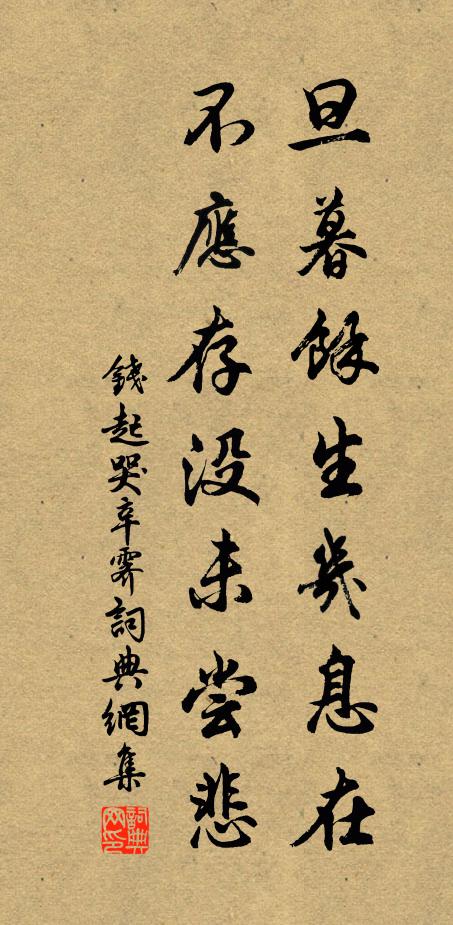 旦暮餘生幾息在
不應存没未尝悲
錢起哭辛霁詞典網集
詞典网印